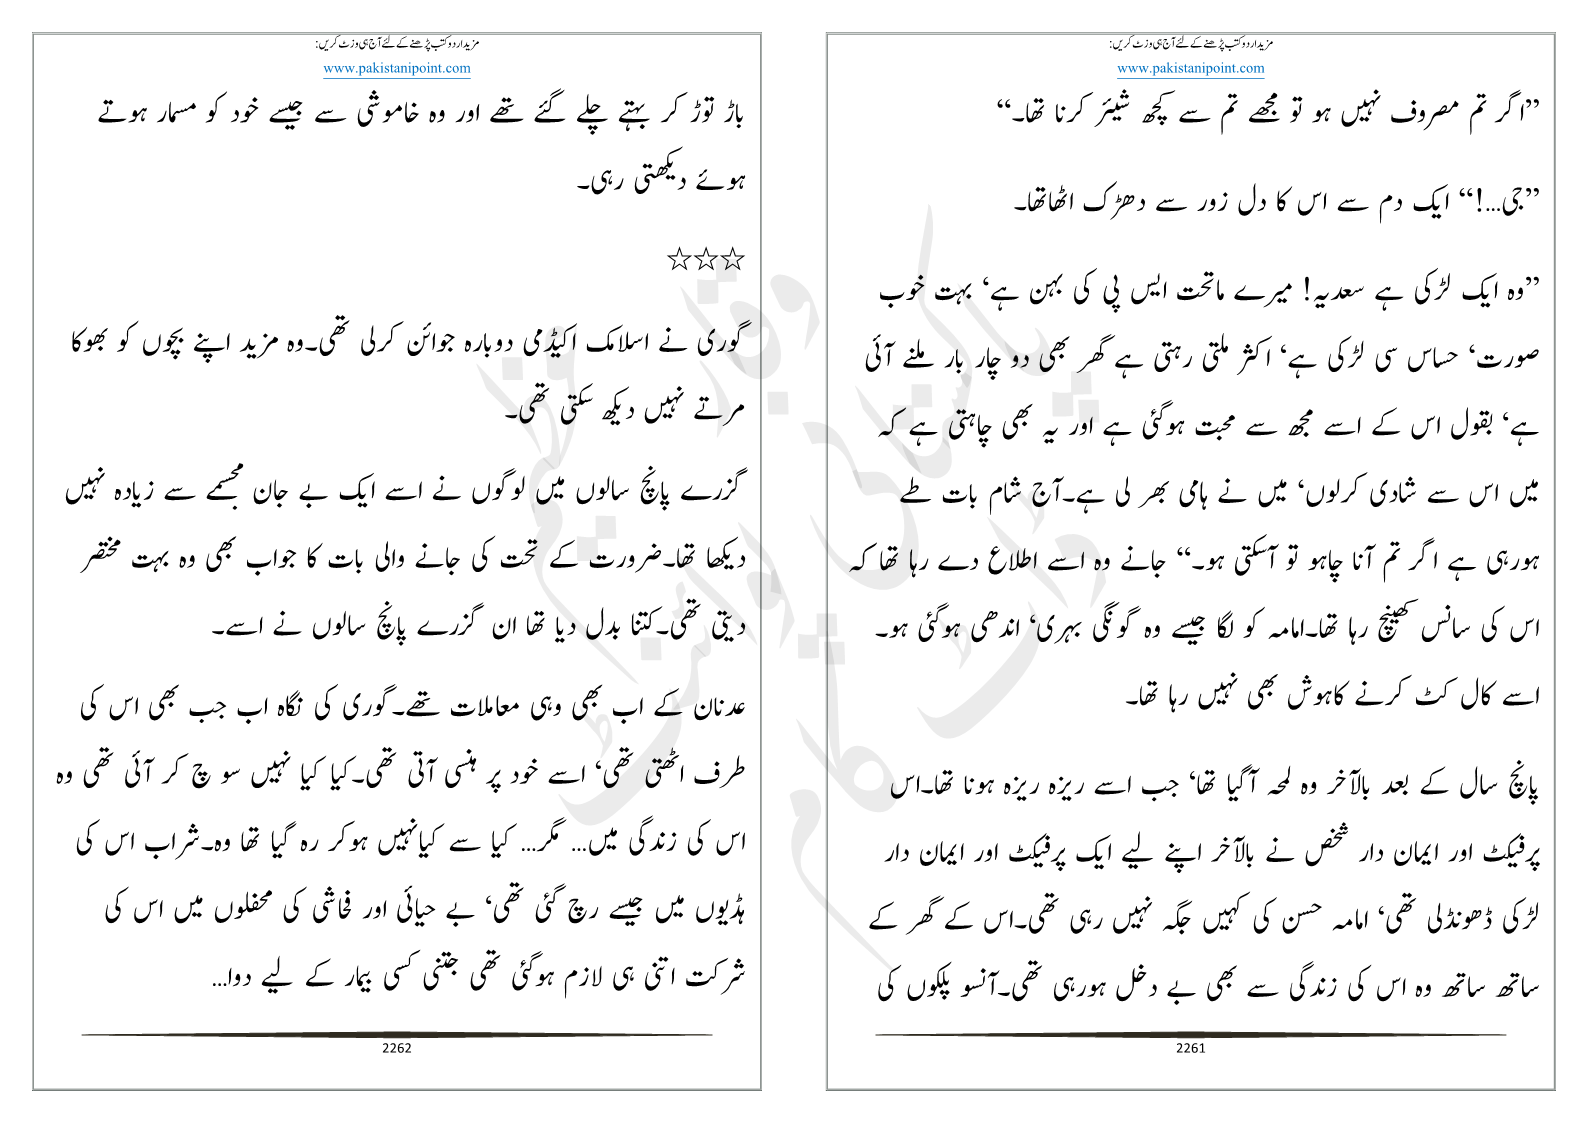 مزید اردو کتب پڑھنے کے لئے آج ہی وزٹ کریں:
www.pakistanipoint.com
”اگر تم مصروف نہیں ہو تو مجھے تم سے کچھ شیئر کرنا تھا۔“
”جی...!“ ایک دم سے اس کا دل زور سے دھڑک اٹھاتھا۔
”وہ ایک لڑکی ہے سعدیہ! میرے ماتحت ایس پی کی بہن ہے‘ بہت خوب
صورت‘ حساس سی لڑکی ہے‘ اکثر ملتی رہتی ہے گھر بھی دو چار بار ملنے آئی
ہے‘ بقول اس کے اسے مجھ سے محبت ہوگئی ہے اور یہ بھی چاہتی ہے کہ
میں اس سے شادی کرلوں‘ میں نے ہامی بھر لی ہے۔آج شام بات طے
ہورہی ہے اگر تم آنا چاہو تو آسکتی ہو۔“ جانے وہ اسے اطلاع دے رہا تھا کہ
اس کی سانس کھینچ رہا تھا۔امامہ کو لگا جیسے وہ گونگی بہری‘ اندھی ہوگئی ہو۔
اسے کال کٹ کرنے کاہوش بھی نہیں رہا تھا۔
پانچ سال کے بعد بالآخر وہ لمحہ آگیا تھا‘ جب اسے ریزہ ریزہ ہونا تھا۔اس
پرفیکٹ اور ایمان دار شخص نے بالآخر اپنے لیے ایک پرفیکٹ اور ایمان دار
لڑکی ڈھونڈلی تھی‘ امامہ حسن کی کہیں جگہ نہیں رہی تھی۔اس کے گھر کے
ساتھ ساتھ وہ اس کی زندگی سے بھی بے دخل ہورہی تھی۔آنسو پلکوں کی
2261
مزید اردو کتب پڑھنے کے لئے آج ہی وزٹ کریں:
www.pakistanipoint.com
باڑ توڑ کر بہتے چلے گئے تھے اور وہ خاموشی سے جیسے خود کو مسمار ہوتے
ہوئے دیکھتی رہی۔
☆☆☆
گوری نے اسلامک اکیڈمی دوبارہ جوائن کرلی تھی۔وہ مزید اپنے بچوں کو بھوکا
مرتے نہیں دیکھ سکتی تھی۔
گزرے پانچ سالوں میں لوگوں نے اسے ایک بے جان مجسمے سے زیادہ نہیں
دیکھا تھا۔ضرورت کے تحت کی جانے والی بات کا جواب بھی وہ بہت مختصر
دیتی تھی۔کتنا بدل دیا تھا ان گزرے پانچ سالوں نے اسے۔
عدنان کے اب بھی وہی معاملات تھے۔گوری کی نگاہ اب جب بھی اس کی
طرف اٹھتی تھی‘ اسے خود پر ہنسی آتی تھی۔کیا کیا نہیں سو چ کر آئی تھی وہ
اس کی زندگی میں... مگر... کیا سے کیانہیں ہوکر رہ گیا تھا وہ۔شراب اس کی
ہڈیوں میں جیسے رچ گئی تھی‘ بے حیائی اور فحاشی کی محفلوں میں اس کی
شرکت اتنی ہی لازم ہوگئی تھی جتنی کسی بیمار کے لیے دوا...
2262
پاکستانی پوائنٹ ڈاٹ کام